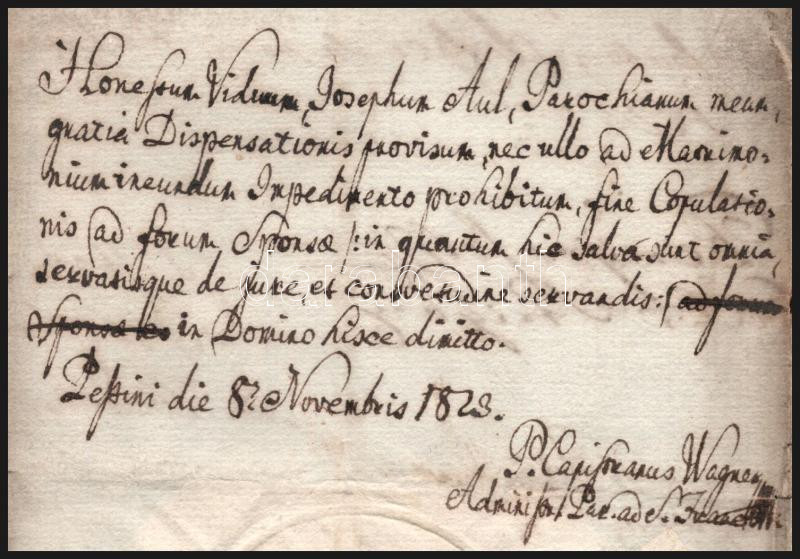 Honestum Viduum, Josephum Aul, Parochianum meum,
gratia Dispensationis provisum, nec ullo ad Matrimo=
nium ineundum Impedimento prohibitum, fine Copulatio=
nis ad forum Sponsæ /: in quantum hic salva sunt omnia,
servatisque de jure et consvetudine servandis: / ad forum
Sponsæ in Domino hisce dimitto.
Pessini die 8ª Novembris 1823.
P. Capistranus Wagner
Administ. Par. ad S.
darabanth